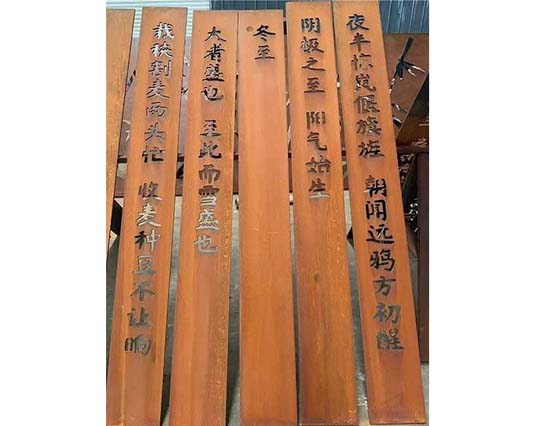 栽秧割麦两头忙 收麦种豆不让晌
大者盛也 至此而雪盛也
冬至
阴极之至 阳气始生
夜半惊岚偃旗旌 朝闻远鸦方初醒